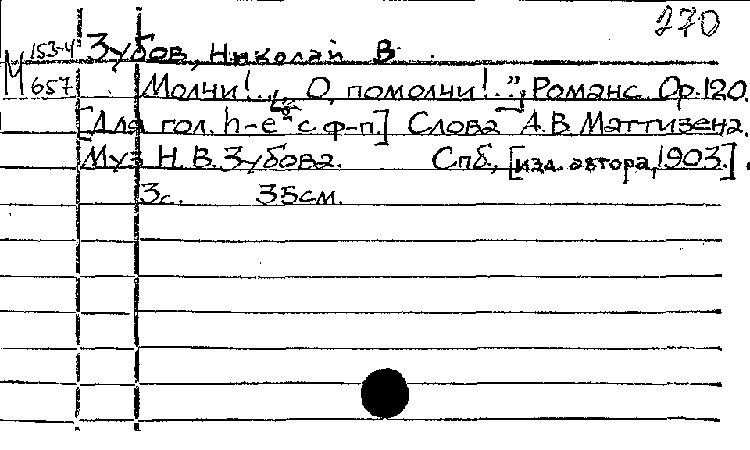 270
М 153-4 Зубов, Николай В.
657 Молчи!.. „О, помолчи!..", Романс. Ор.120.
[Для гол. h-e² с ф-п.] Слова А.В. Маттизена.
Муз. Н.В. Зубова. Спб, [изд. автора, 1903.].
3с. 35см.